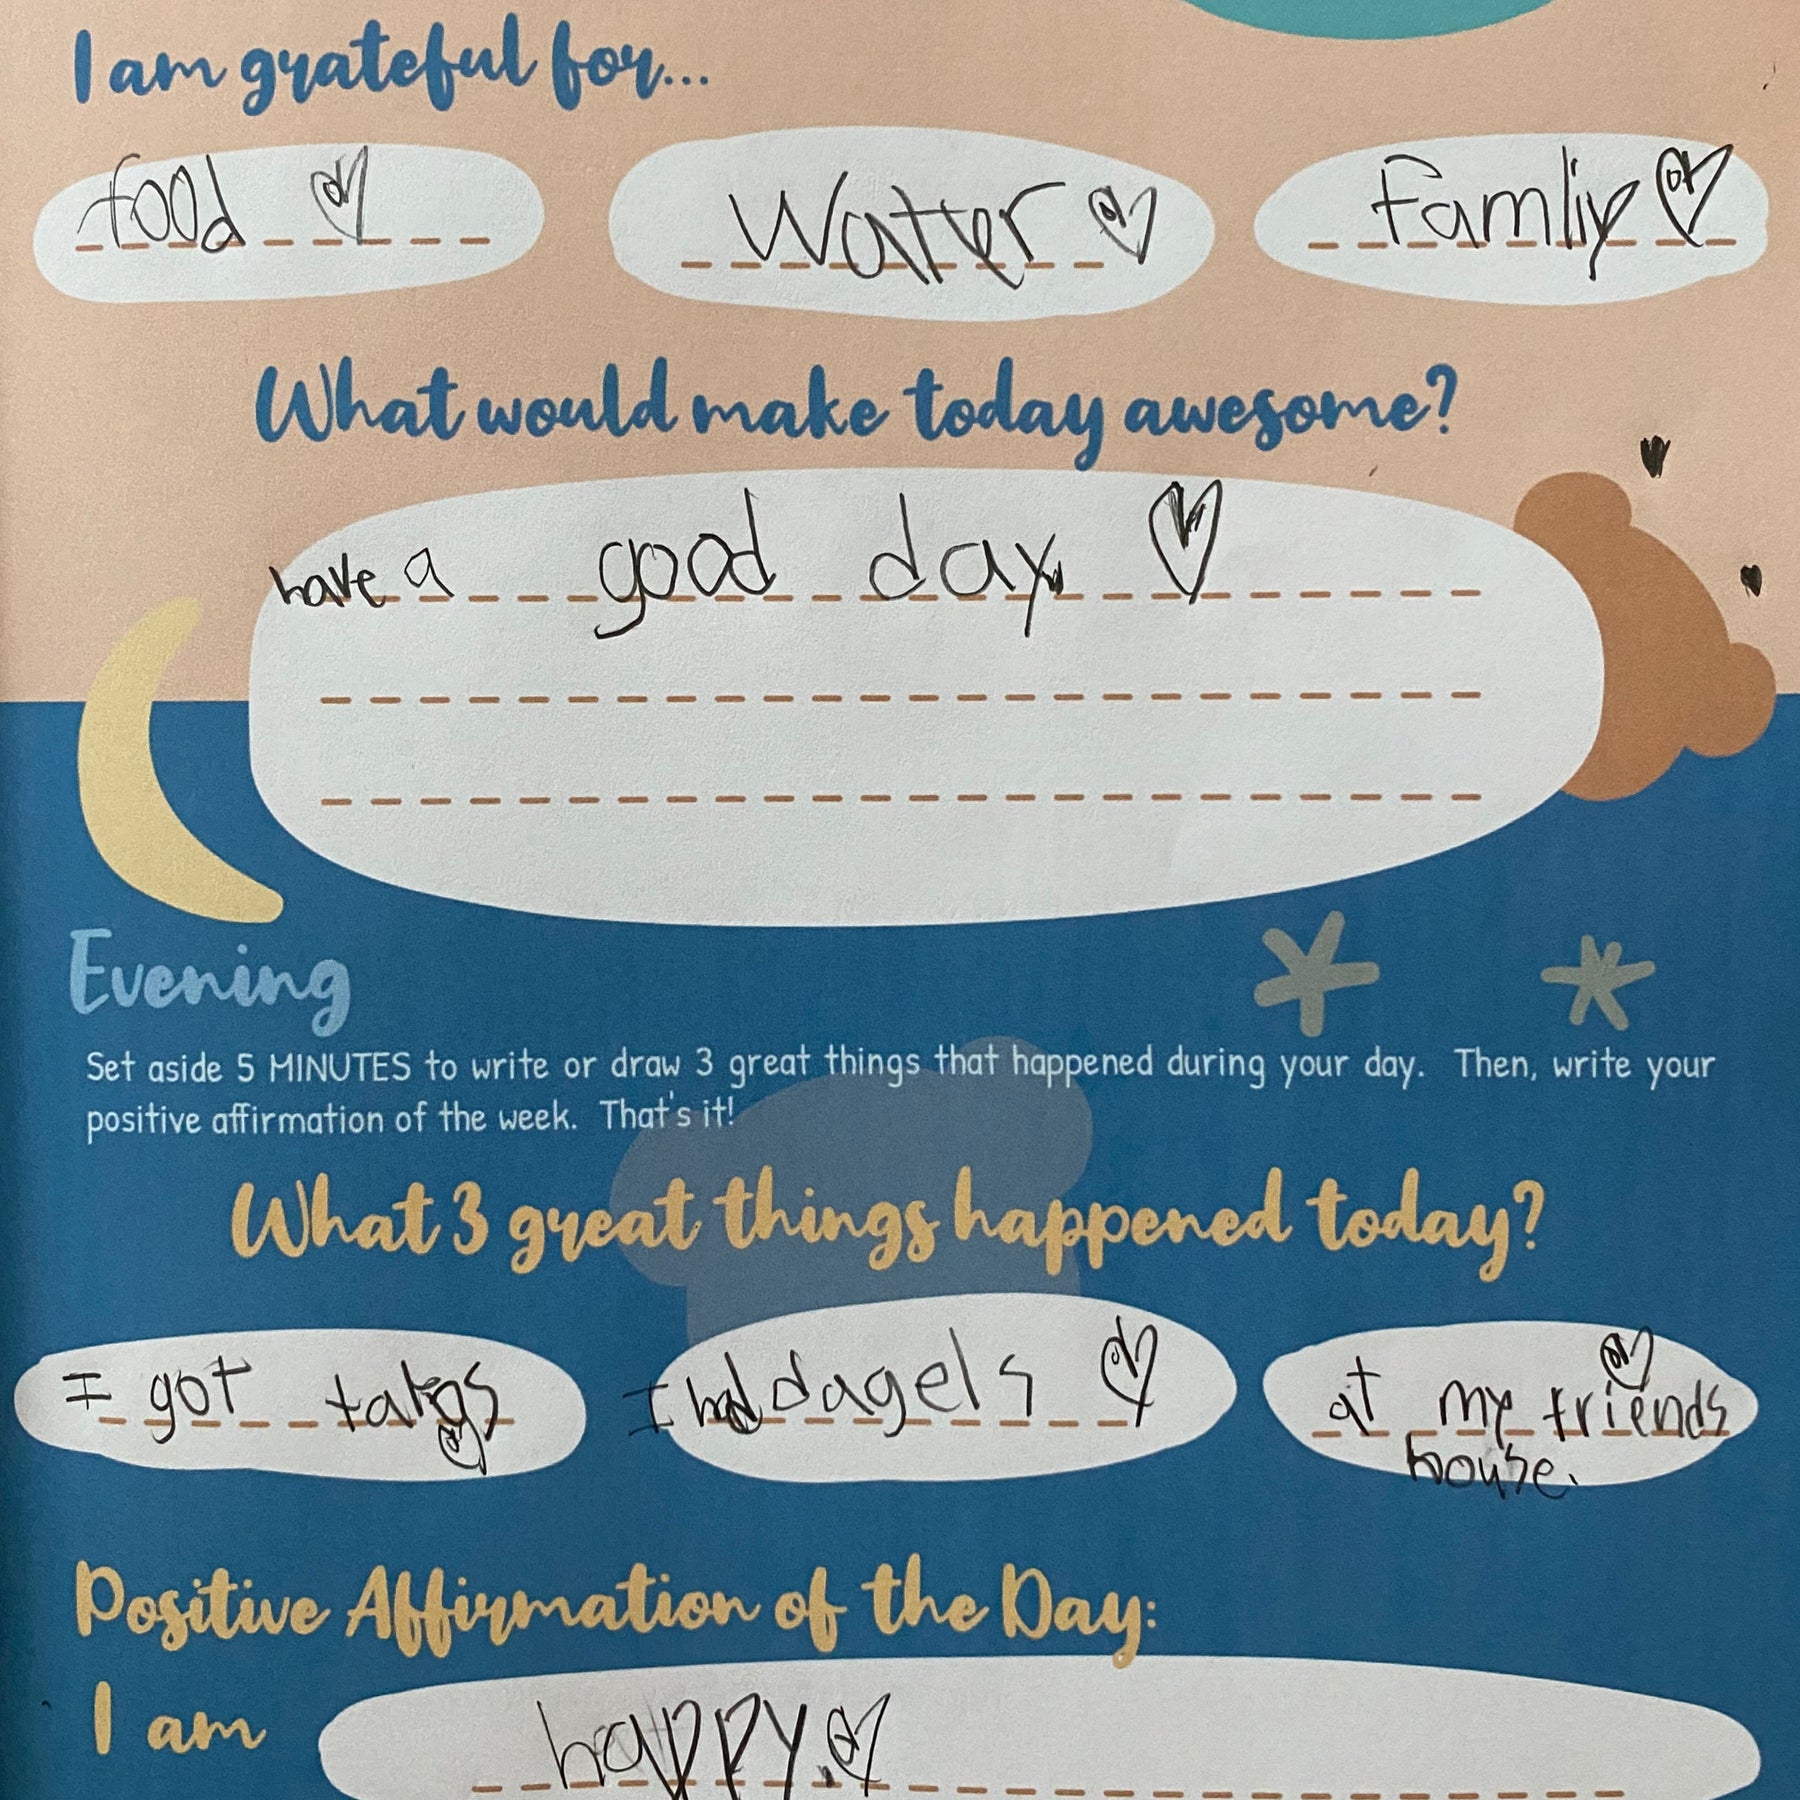 I am grateful for...
food Watter Famliy
What would make today awesome?
have a good day.
Evening
Set aside 5 MINUTES to write or draw 3 great things that happened during your day. Then, write your
positive affirmation of the week. That's it!
What 3 great things happened today?
I got I had dagels at my friends
house.
Positive Affirmation of the Day:
I am happy.